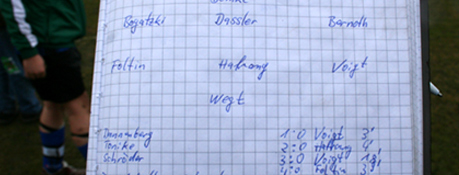 Bogatzki Dassler Bernoth
Foltin Hafrang Voigt
Wegt
Dannenberg 1:0 Voigt 3'
Tonike 2:0 Hafrang 4'
Schröder 3:0 Voigt
4:0 Foltin